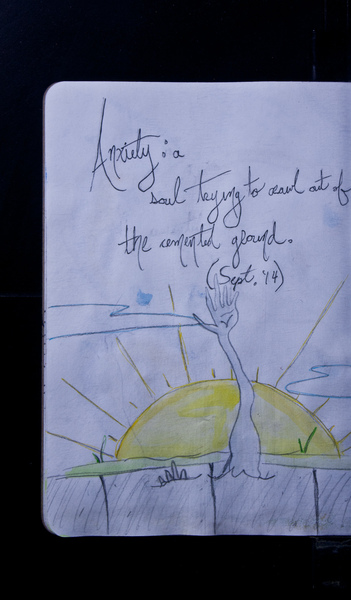 Anxiety: a
soul trying to crawl out of
the cemented ground.
(Sept. '14)